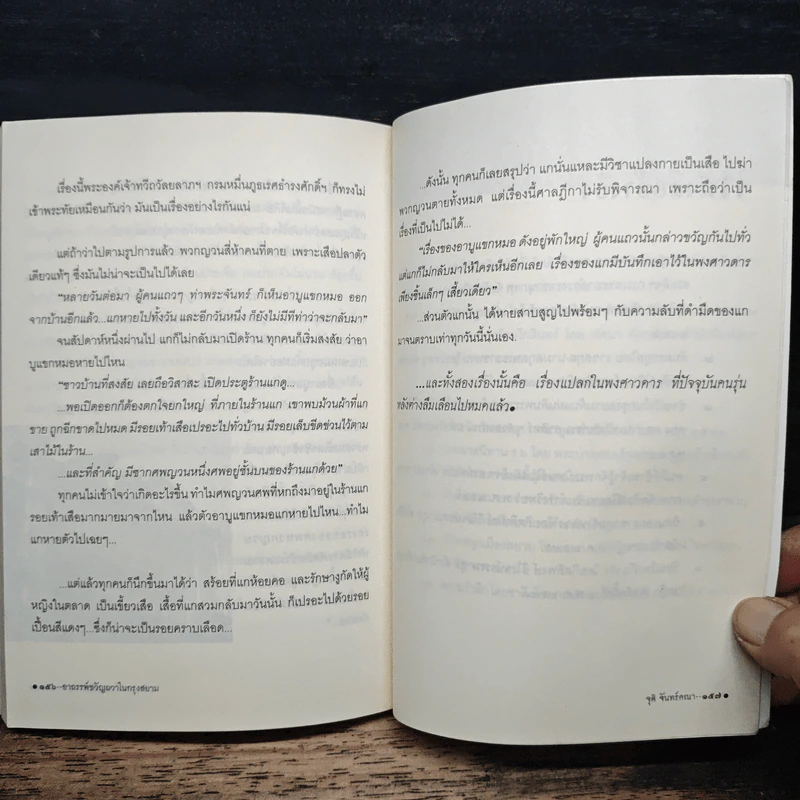 เรื่องนี้พระองค์เจ้าทวีถวัลยลาภฯ กรมหมื่นภูธเรศธำรงศักดิ์ฯ ก็ทรงไม่
เข้าพระทัยเหมือนกันว่า มันเป็นเรื่องอย่างไรกันแน่
แต่ถ้าว่าไปตามรูปการแล้ว พวกญวนสี่ห้าคนที่ตาย เพราะเสือปลาตัว
เดียวแท้ๆ ซึ่งมันไม่น่าจะเป็นไปได้เลย
“หลายวันต่อมา ผู้คนแถวๆ ท่าพระจันทร์ ก็เห็นอาบูแขกหมอ ออก
จากบ้านอีกแล้ว...แกหายไปทั้งวัน และอีกวันหนึ่ง ก็ยังไม่มีทีท่าว่าจะกลับมา”
จนสัปดาห์หนึ่งผ่านไป แกก็ไม่กลับมาเปิดร้าน ทุกคนก็เริ่มสงสัย ว่าอา-
บูแขกหมอหายไปไหน
“ชาวบ้านที่สงสัย เลยถือวิสาสะ เปิดประตูร้านแกดู...
...พอเปิดออกก็ต้องตกใจยกใหญ่ ที่ภายในร้านแก เขาพบม้วนผ้าที่แก
ขาย ถูกฉีกขาดไปหมด มีรอยเท้าเสือเปรอะไปทั่วบ้าน มีรอยเล็บขีดข่วนไว้ตาม
เสาไม้ในร้าน...
...และที่สำคัญ มีซากศพญวนหนึ่งศพอยู่ชั้นบนของร้านแกด้วย”
ทุกคนไม่เข้าใจว่าเกิดอะไรขึ้น ทำไมศพญวนศพที่หกถึงมาอยู่ในร้านแก
รอยเท้าเสือมากมายมาจากไหน แล้วตัวอาบูแขกหมอแกหายไปไหน...ทำไม
แกหายตัวไปเฉยๆ...
...แต่แล้วทุกคนก็นึกขึ้นมาได้ว่า สร้อยที่แกห้อยคอ และรักษางูกัดให้ผู้
หญิงในตลาด เป็นเขี้ยวเสือ เสื้อที่แกสวมกลับมาวันนั้น ก็เปรอะไปด้วยรอย
เปื้อนสีแดงๆ...ซึ่งก็น่าจะเป็นรอยคราบเลือด...
● ๑๕๖--อาถรรพ์ขวัญผวาในกรุงสยาม
...ดังนั้น ทุกคนก็เลยสรุปว่า แกนั่นแหละมีวิชาแปลงกายเป็นเสือ ไปฆ่า
พวกญวนตายทั้งหมด แต่เรื่องนี้ศาลฎีกาไม่รับพิจารณา เพราะถือว่าเป็น
เรื่องที่เป็นไปไม่ได้...
“เรื่องของอาบูแขกหมอ ดังอยู่พักใหญ่ ผู้คนแถวนั้นกล่าวขวัญกันไปทั่ว
แต่แกก็ไม่กลับมาให้ใครเห็นอีกเลย เรื่องของแกมีบันทึกเอาไว้ในพงศาวดาร
เพียงชิ้นเล็กๆ เสี้ยวเดียว”
...ส่วนตัวแกนั้น ได้หายสาบสูญไปพร้อมๆ กับความลับที่ดำมืดของแก
มาจนตราบเท่าทุกวันนี้นั่นเอง.
...และทั้งสองเรื่องนั้นคือ เรื่องแปลกในพงศาวดาร ที่ปัจจุบันคนรุ่น
หลังต่างลืมเลือนไปหมดแล้ว●
จุติ จันทร์คณา--๑๕๗ ●